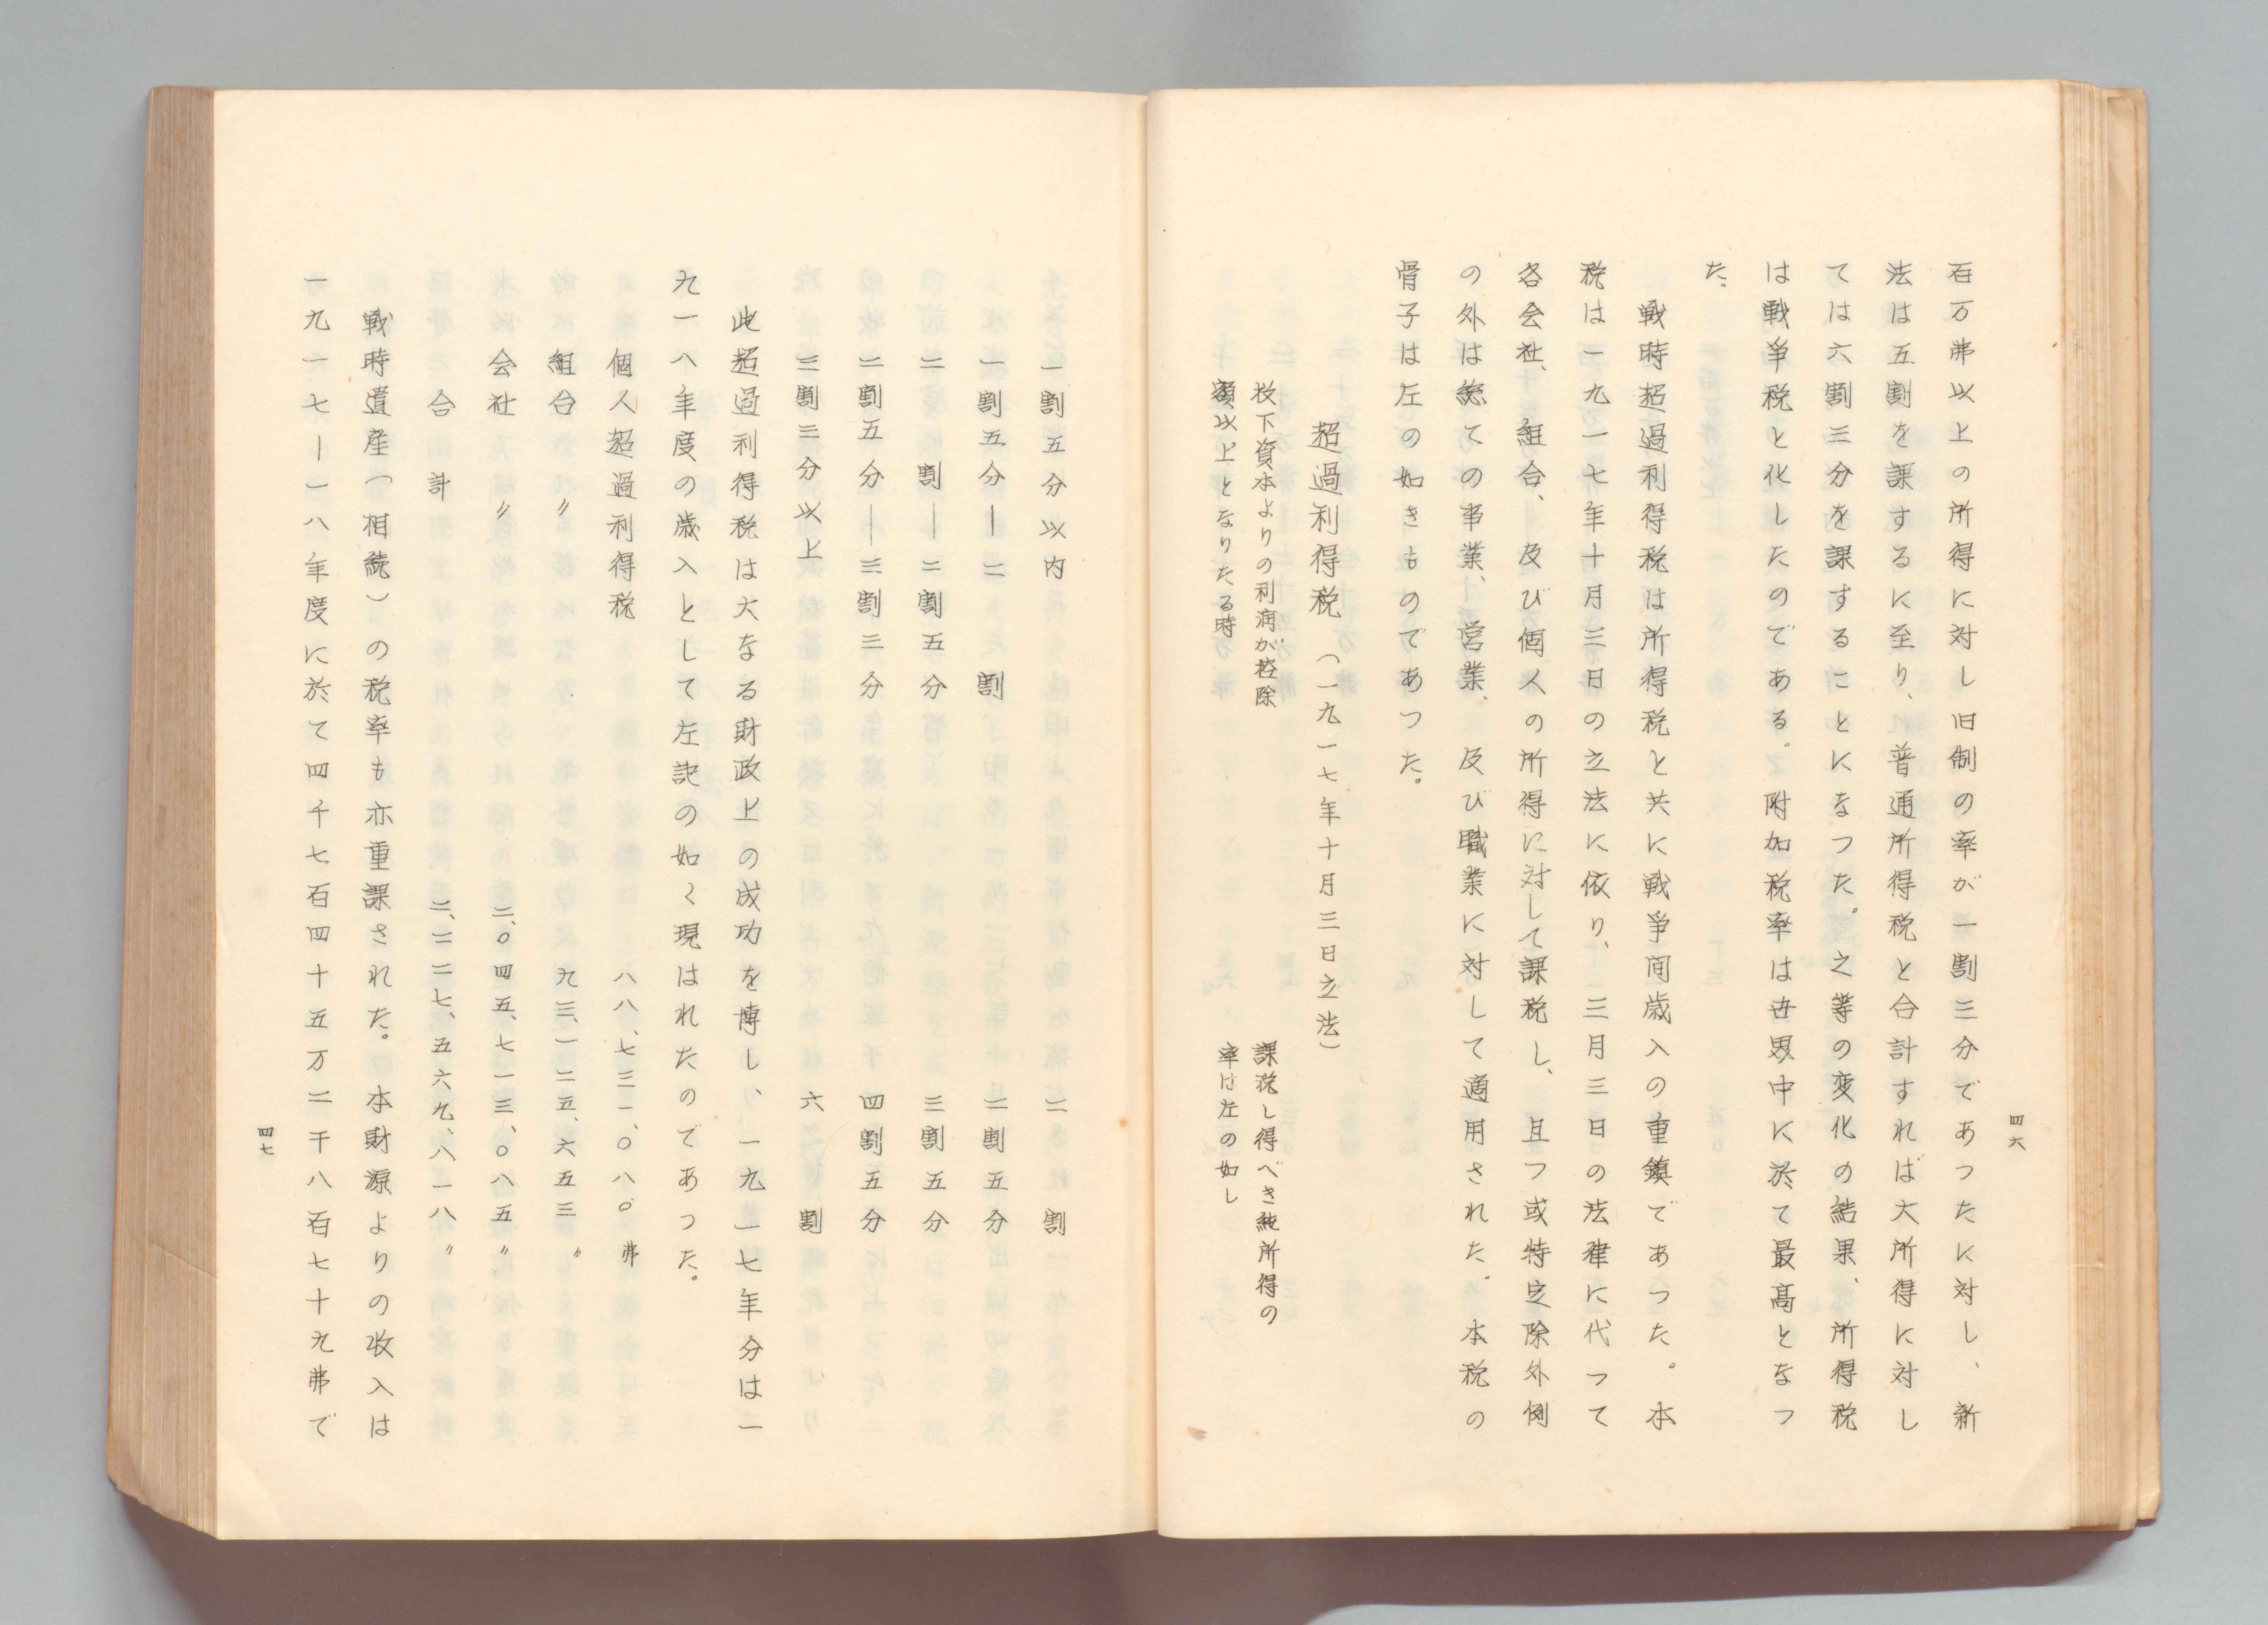 四六
百万弗以上の所得に対し旧制の率が一割三分であつたに対し、新
法は五割を課するに至り、普通所得税と合計すれば大所得に対し
ては六割三分を課することになつた。之等の変化の結果、所得税
は戦争税と化したのである。附加税率は世界中に於て最高となつ
た。
戦時超過利得税は所得税と共に戦争間歳入の重鎮であつた。本
税は一九一七年十月三日の立法に依り、三月三日の法律に代つて
各会社、組合、及び個人の所得に対して課税し、且つ或特定除外例
の外は総ての事業、営業、及び職業に対して適用された。本税の
骨子は左の如きものであつた。
超過利得税（一九一七年十月三日立法）
投下資本よりの利潤が控除
額以上となりたる時
課税し得べき純所得の
率は左の如し
一割五分以内 二割
一割五分―二割 二割五分
二割―二割五分 三割五分
二割五分―三割三分 四割五分
三割三分以上 六割
此超過利得税は大なる財政上の成功を博し、一九一七年分は一
九一八年度の歳入として左記の如く現はれたのであつた。
個人超過利得税 八八、七三一、〇八〇弗
組合〃 九三、一二五、六五三〃
会社〃 二、〇四五、七一三、〇八五〃
合計 二、二二七、五六九、八一八〃
戦時遺産（相続）の税率も亦重課された。本財源よりの收入は
一九一七―一八年度に於て四千七百四十五万二千八百七十九弗で
四七